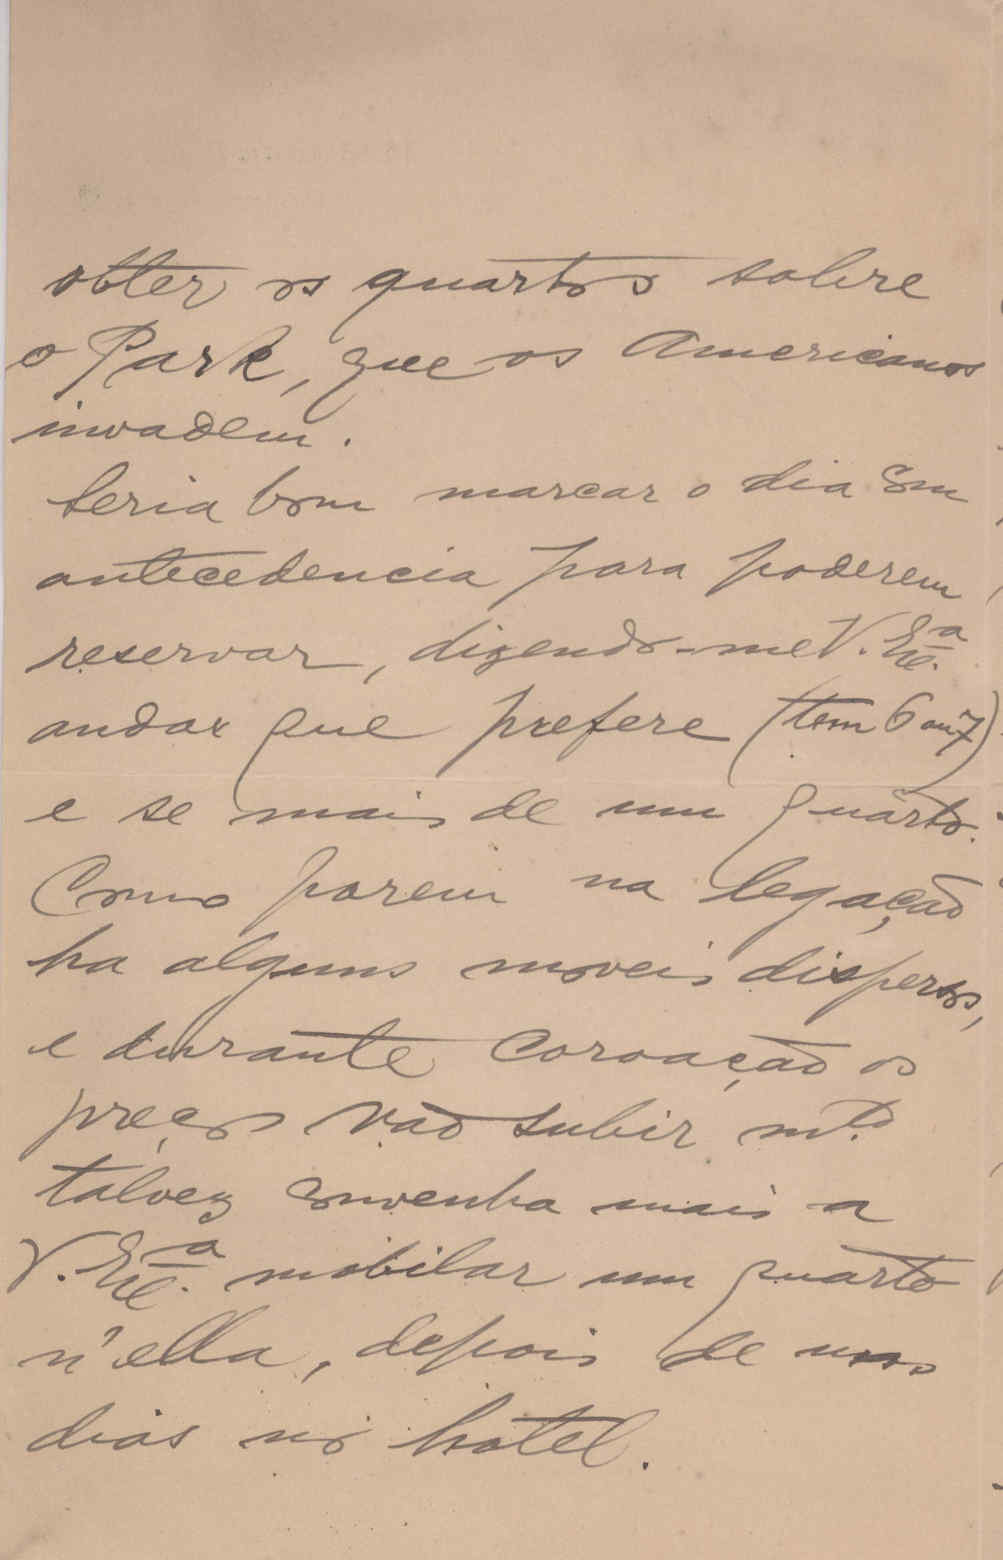 obter os quartos sobre
o Park, que os Americanos
invadem.
Seria bom marcar o dia com
antecedencia para poderem
reservar, dizendo-me V. Exc.ª
andar que prefere (tem 6 ou 7)
e se mais de um quarto.
Como porem na legação
ha alguns moveis dispersos,
e durante Coroação os
preços vão subir m.to
talvez convenha mais a
V. Exc.ª mobilar um quarto
n'ella, depois de uns
dias no hotel.